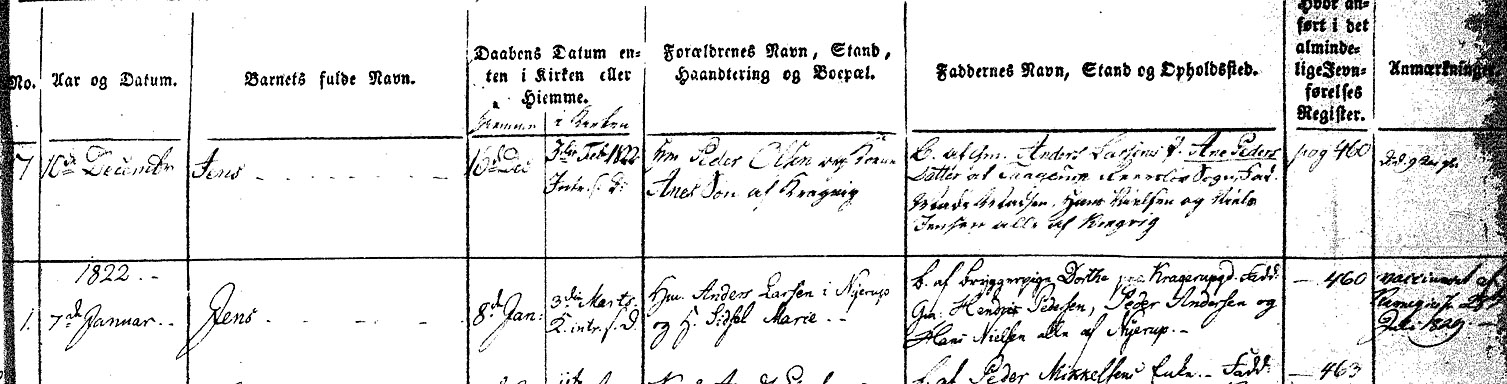 No.
Aar og Datum.
Barnets fulde Navn.
Daabens Datum en-
ten i Kirken eller
Hiemme.
Hiemme i Kirken
Forældrenes Navn, Stand,
Haandtering og Boepæl.
Faddernes Navn, Stand og Opholdssted.
Hvor an-
ført i det
alminde-
lige Jevn-
førelses
Register.
Anmærkninger.
7 16de Decembr Jens
16de Dec
3die Febr 1822
Intr. f. D.
Gm Peder Olsen og Kone
Anes Søn af Kragvig
B. af Gm. Anders Larsens D. Ane Peders
Datter af Sogn, Fad.
Mads Madsen, Hans Nielsen og Niels
Jensen alle af Kragvig
pag 460
1822.
1. 7de Januar. Jens
8de Jan:
3die Marts
K. intr. f. D.
Hm. Anders Larsen i Nyerup
og H. Sidsel Marie.
b. af Dorthe Kragerupgd. Fadd.
Gm. Hendric Pedersen, Peder Andersen og
Hans Nielsen alle af Nyerup.
460
vaccineret af
Juli 1829.
b. af Peder Mikkelsens Enke. Fadd.
463